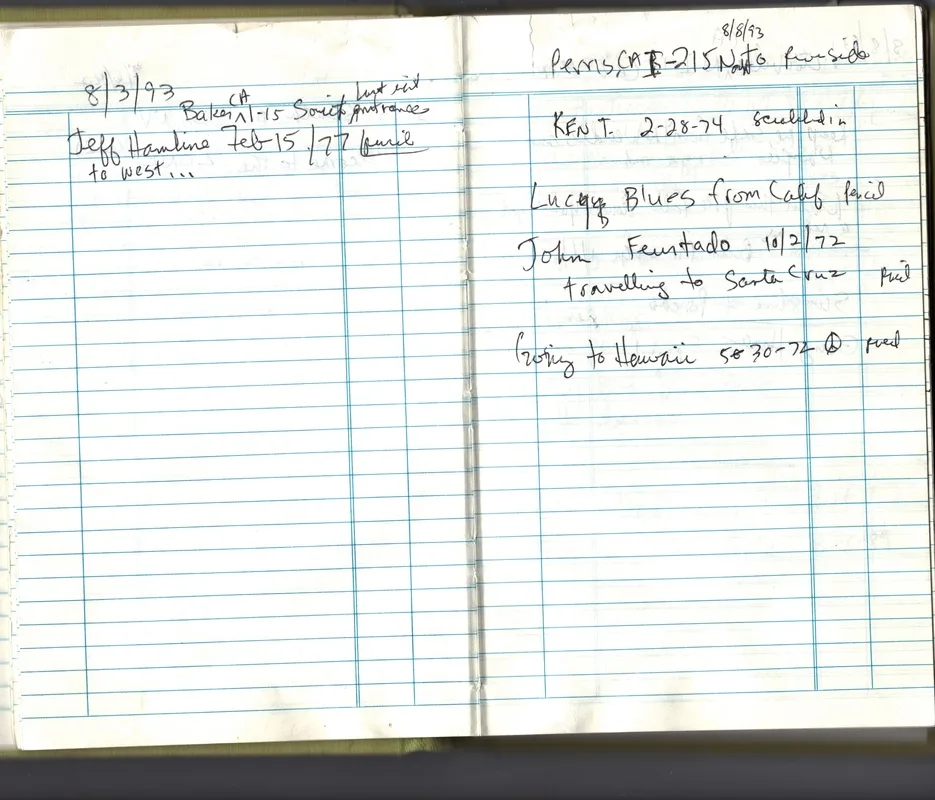 8/3/93
Baker CA I-15 South entrance
Jeff Hamline Feb 15/77 pencil
to west...
8/8/93
Perris, CA I-215 North to Riverside
KEN T. 2-28-74 scratched in
Lucky Blues from Calif pencil
John Feurtado 10/2/72
travelling to Santa Cruz pencil
Going to Hawaii 5-30-72 ☮ pencil